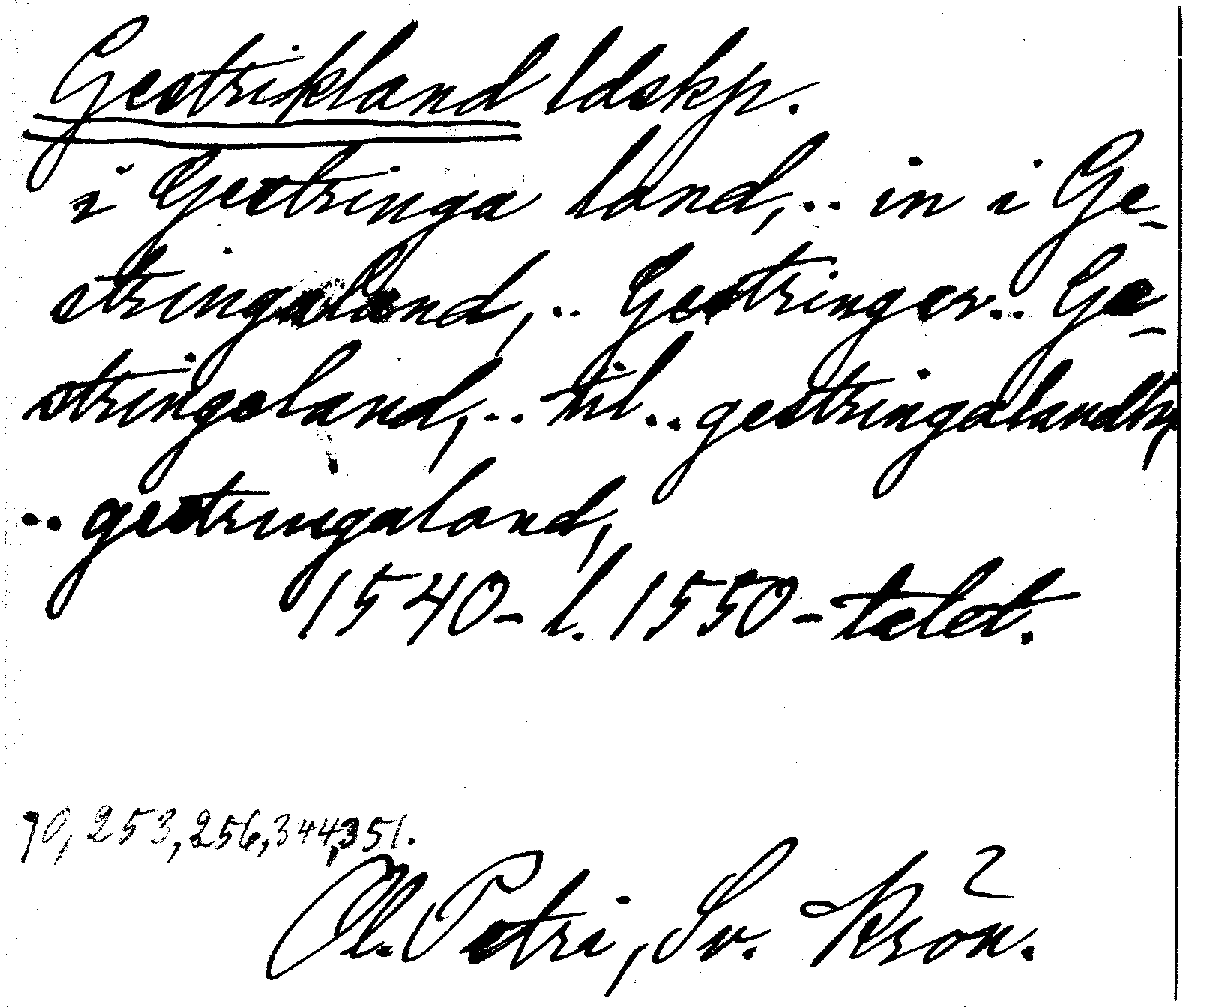 Gestrikland ldskp.
i Gestringa land, .. in i Ge-
stringaland, .. Gestringer .. Ge-
stringeland, .. til .. gestringalandh
.. gestringaland,
1540- l. 1550-talet.
70, 253, 256, 344, 351.
Ol. Petri, Sv. Krön. 2